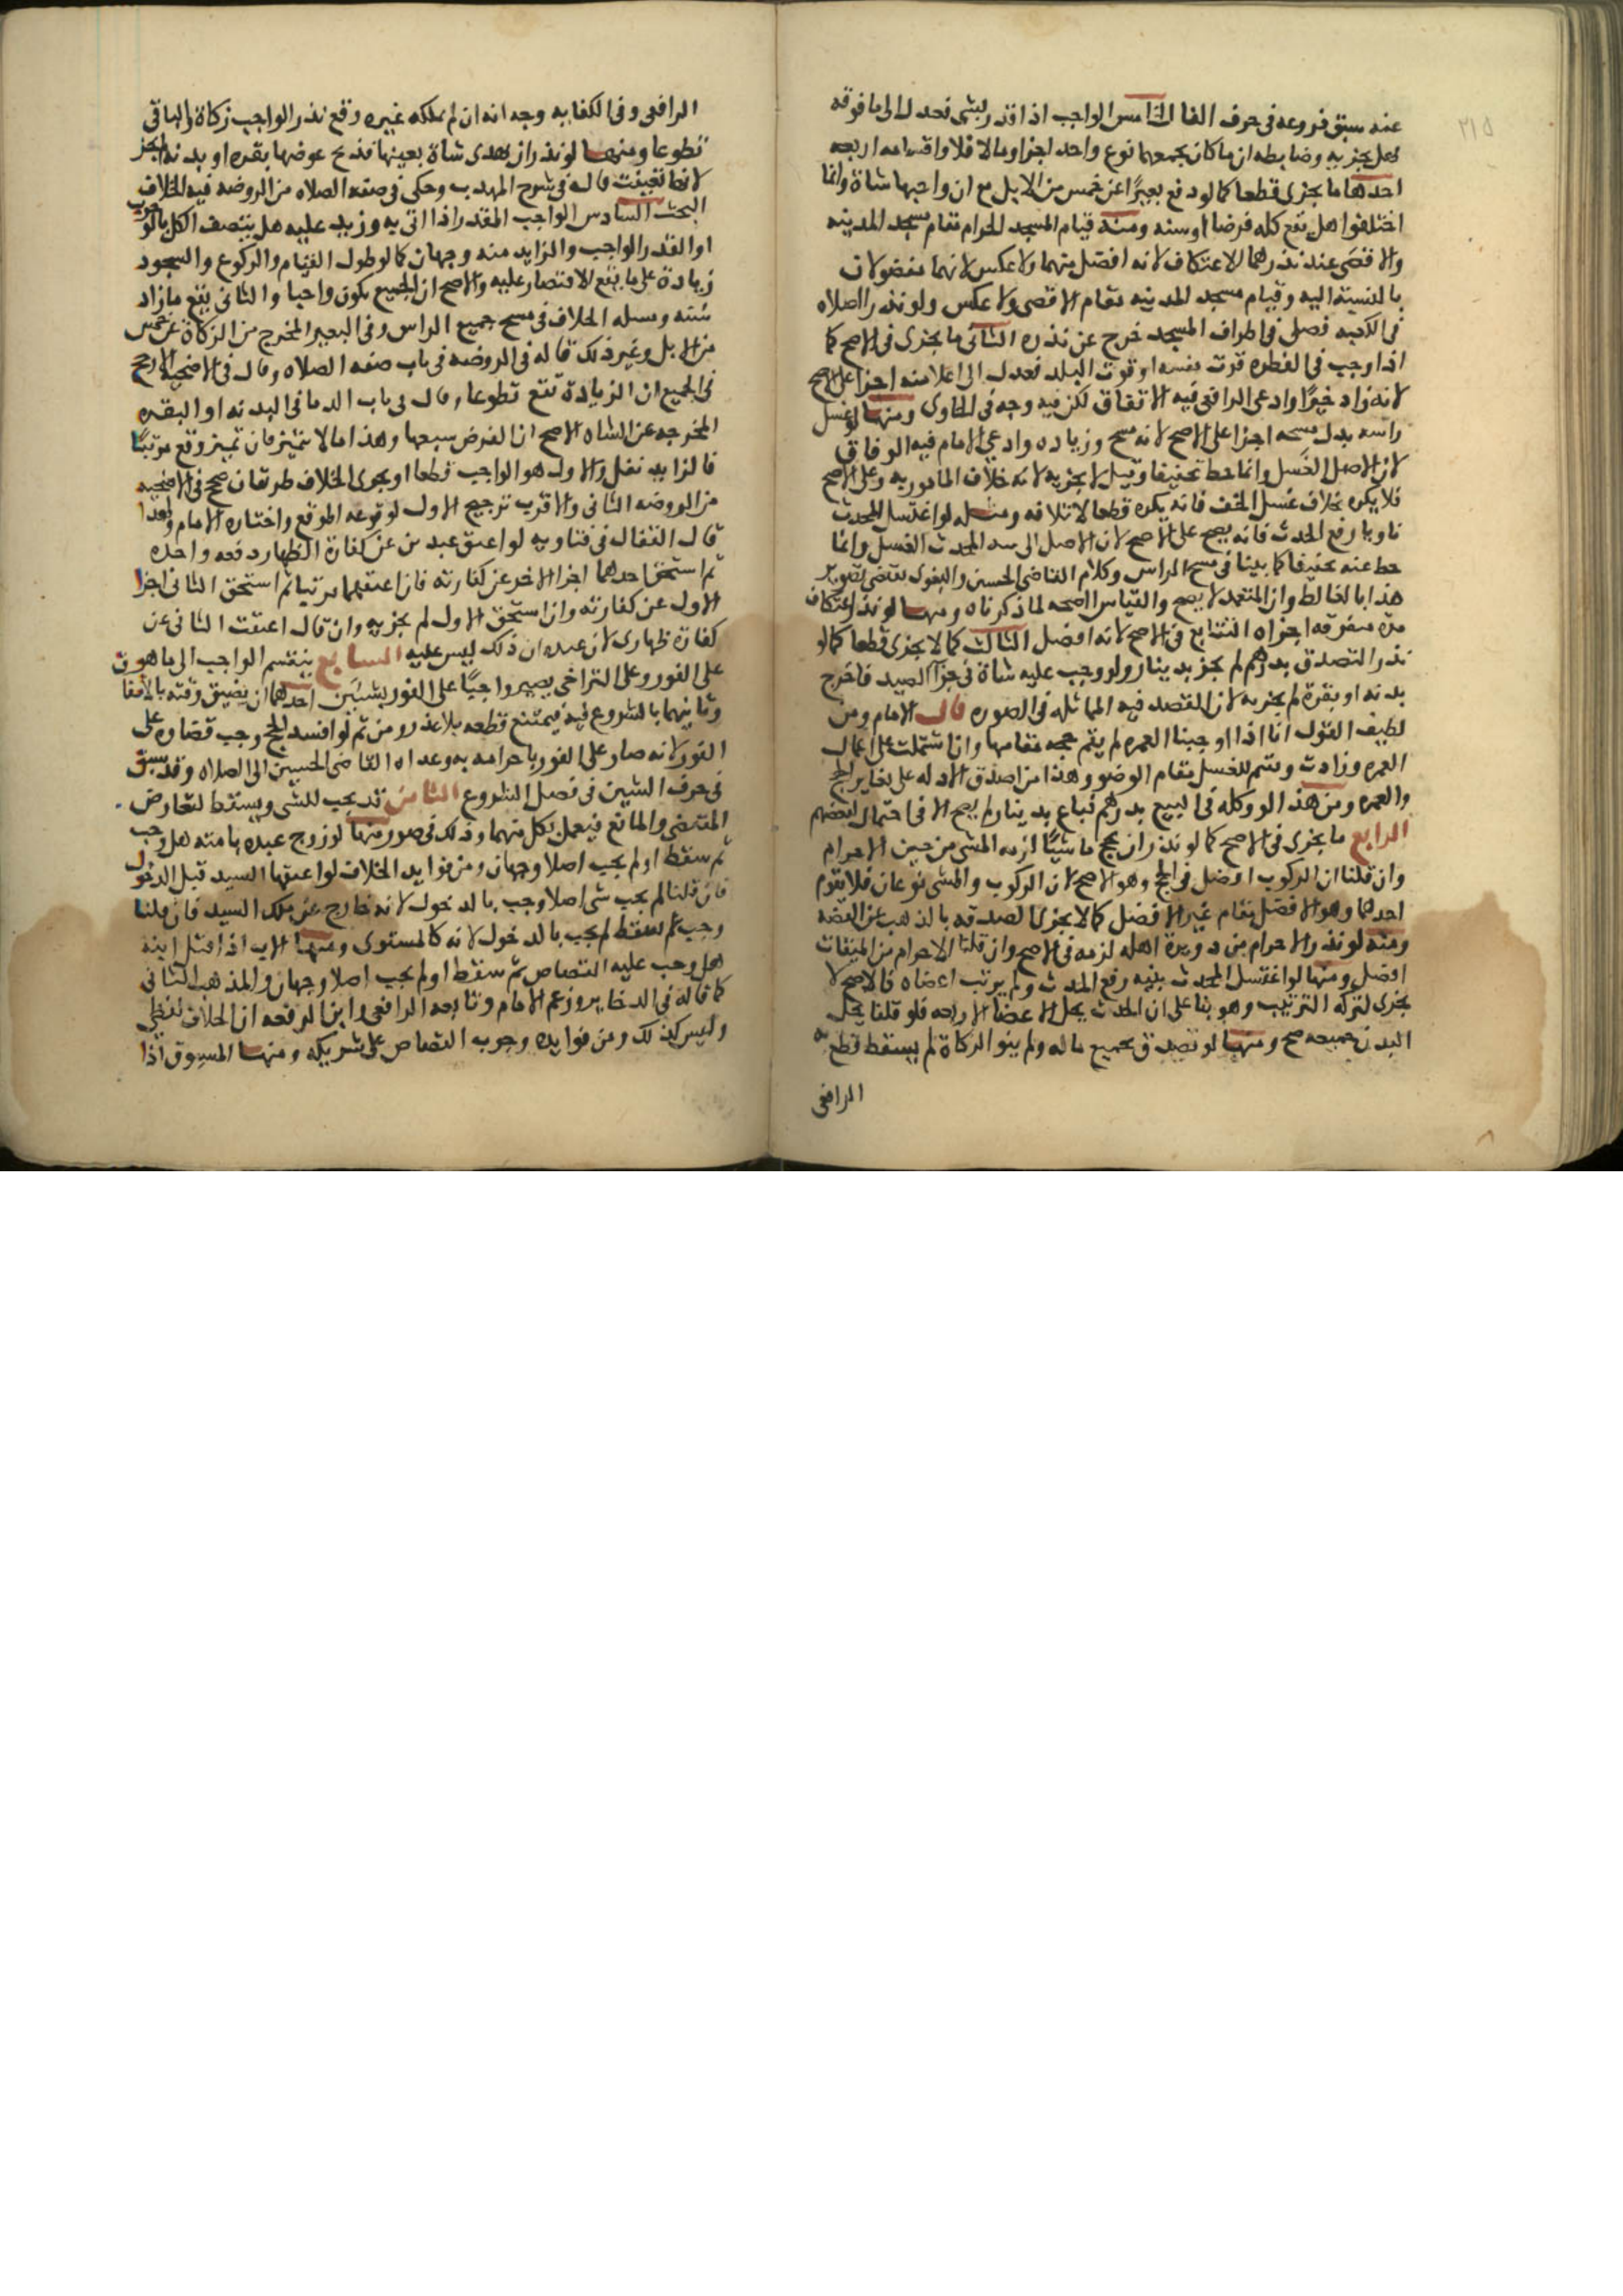 عنه سبق فروعه فى حرف الفا الخامس الواجب اذا قدر بشى فعدل الى ما فوقه
هل يجزيه وضابطه ان ما كان يجمعهما نوع واحد اجزا ومالا فلا واقسامه اربعه
احدها ما يجزى قطعا كما لو دفع بعيرًا عن خمس من الابل مع ان واجبها شاة وانما
اختلفوا هل تقع كله فرضا او سنه ومنه قيام المسجد الحرام مقام مسجد المدينه
والاقصى عند نذرهما الاعتكاف لانه افضل منهما ولا عكس لانهما مفضولان
بالنسبة اليه وقيام مسجد المدينه مقام الاقصى ولا عكس ولو نذر الصلاه
فى الكعبه فصلى فى اطراف المسجد خرج عن نذره الثانى ما يجزى فى الاصح كما
اذا وجب فى الفطره قوت نفسه او قوت البلد فعدل الى اعلا منه اجزا على الاصح
لانه زاد خيرًا وادعى الرافعى فيه الاتفاق لكن فيه وجه فى الحاوى ومنها لو غسل
راسه بدل مسحه اجزا على الاصح لانه مسح وزياده وادعى الامام فيه الوفاق
لان الاصل الغسل وانما حط تخفيفا وقيل لا يجزيه لانه خلاف المامور به وعلى الاصح
فلا يكره بخلاف غسل الخف فانه يكره قطعا لاتلافه ومثله لو اغتسل المحدث
ناويا رفع الحدث فانه يصح على الاصح لان الاصل فى الحدث الغسل وانما
حط عنه تخفيفا كما بينا فى مسح الراس وكلام القاضى الحسين والبغوى يقتضى تصوير
هذا بالغالط وان المتعمد لا يصح والقياس الصحه لما ذكرناه ومنها لو نذر اعتكاف
مده متفرقه اجزاه التتابع فى الاصح لانه افضل الثالث كما لا يجزى قطعا كما لو
نذر التصدق بدرهم لم يجز بدينار ولو وجب عليه شاة فى جزا الصيد فاخرج
بدنه او بقرة لم يجزيه لان القصد فيه المماثله فى الصوره قال الامام ومن
لطيف القول انا اذا اوجبنا العمره لم يقم حجه مقامها وان اشتملت على اعمال
العمره وزادت ويتم للغسل مقام الوضو وهذا من اصدق الادله على تغاير الحج
والعمره ومن هذا لو وكله فى البيع بدرهم فباع بدينار لم يصح الا فى احتمال لبعضهم
الرابع ما يجزى فى الاصح كما لو نذر ان يحج ماشيًا لزمه المشى من حين الاحرام
وان قلنا ان الركوب افضل فى الحج وهو الاصح لان الركوب والمشى نوعان فلا يقوم
احدهما وهو الافضل مقام غير الافضل كما لا يجزى الصدقه بالذهب عن الفضه
ومنه لو نذر الاحرام من دويرة اهله لزمه فى الاصح وان قلنا الاحرام من الميقات
افضل ومنها لو اغتسل المحدث بنيه رفع الحدث ولم يرتب اعضاه فالاصح لا
يجزى لتركه الترتيب وهو بنا على ان الحدث يحل الاعضا الاربعه فلو قلنا يحل
البدن جميعه صح ومنها لو تصدق بجميع ماله ولم ينو الزكاة لم يسقط قطع به
الرافعى
الرافعى وفى الكفايه وجه انه ان لم يملكه غيره وقع نذر الواجب زكاة والباقى
تطوعا ومنها لو نذر ان يهدى شاة بعينها فذبح عوضها بقره او بدنه لم يجز
لانها تعينت قاله فى شرح المهذب وحكى فى صفه الصلاه من الروضه فيه الخلاف
البحث السادس الواجب المقدر اذا اتى به وزيد عليه هل يتصف الكل بالوجوب
او القدر الواجب والزايد منه وجهان كما لو طول القيام والركوع والسجود
زيادة على ما يقع الاقتصار عليه والاصح ان الجميع يكون واجبا والثانى يقع ما زاد
سُنّه ومسله الخلاف فى مسح جميع الراس وفى البعير المخرج من الزكاة عن خمس
من الابل وغير ذلك قاله فى الروضه فى باب صفه الصلاه وقال فى الاضحيه الارجح
فى الجميع ان الزيادة تقع تطوعا وقال فى باب الدما فى البدنه او البقره
المخرجه عن الشاه الاصح ان الفرض سبعها وهذا ما لا يتميز فان تميز وقع مرتبًا
فالزايد نفل والاول هو الواجب قطعا او يجرى الخلاف طريقان صحح فى الاضحيه
من الروضه الثانى والاقرب ترجيح الاول لوقوعه الموقع واختاره الامام ولهذا
قال القفال فى فتاويه لو اعتق عبدين عن كفارة الظهار دفعه واحده
ثم استحق احدهما اجزا الاخر عن كفارته فان اعتقهما مرتبا ثم استحق الثانى اجزا
الاول عن كفارته وان استحق الاول لم يجزيه وان قال اعتقت الثانى عن
كفارة ظهارى لان عنده ان ذلك ليس عليه السابع ينقسم الواجب الى ما هو
على الفور وعلى التراخى يصير واجبًا على الفور بشيئين احدهما ان يضيق وقته بالاتفاق
وثانيهما بالشروع فيه فيمتنع قطعه بلا عذر ومن ثم لو افسد الحج وجب قضاوه على
الفور لانه صار على الفور باحرامه به وعداه القاضى الحسين الى الصلاه وقد سبق
فى حرف الشين فى فصل الشروع الثامن قد يجب للشى ويسقط لتعارض
المقتضى والمانع فيعمل بكل منهما وذلك فى صور منها لو زوج عبده بامته هل وجب
ثم سقط او لم يجب اصلا وجهان ومن فوايد الخلاف لو اعتقها السيد قبل الدخول
فان قلنا لم يجب شى اصلا وجب بالدخول لانه خارج عن ملك السيد فان قلنا
وجب ثم سقط لم يجب بالدخول لانه كالمستوفى ومنها الاب اذا قتل ابنه
هل وجب عليه القصاص ثم سقط او لم يجب اصلا وجهان والمذهب الثانى
كما قاله فى الدخاير وزعم الامام وتابعه الرافعى وابن الرفعه ان الخلاف لفظى
وليس كذلك ومن فوايده وجوب القصاص على شريكه ومنها المسبوق اذا